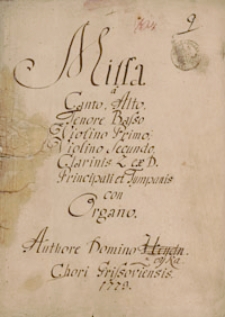 9
Missa
a
Canto. Alto.
Tenore Basso
Violino Primo.
Violino Secundo.
Clarinis 2 ex D.
Principali et Tympanis
con
Organo.
Authore Domino
Chori Grissoviensis.
1779.